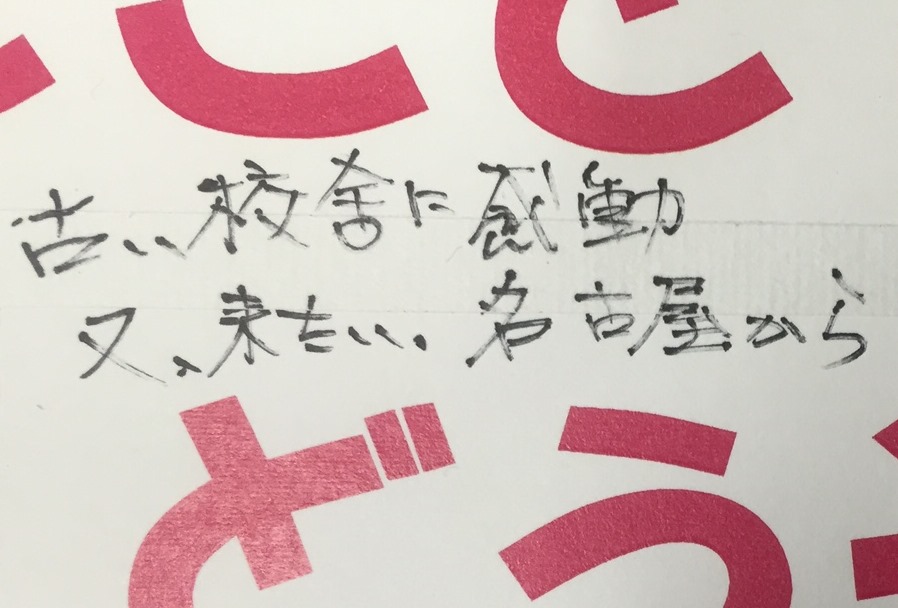 こと
古い校舎に感動
又、来たい、名古屋から
どう